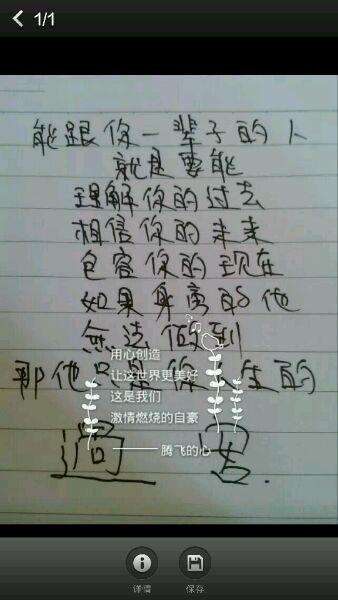 1/1
能跟你一辈子的人
就是要能
理解你的过去
相信你的未来
包容你的现在
如果身旁的他
无法做到
那他只是你 生的
过客.
用心创造
让这世界更美好
这是我们
激情燃烧的自豪
腾飞的心
详情
保存